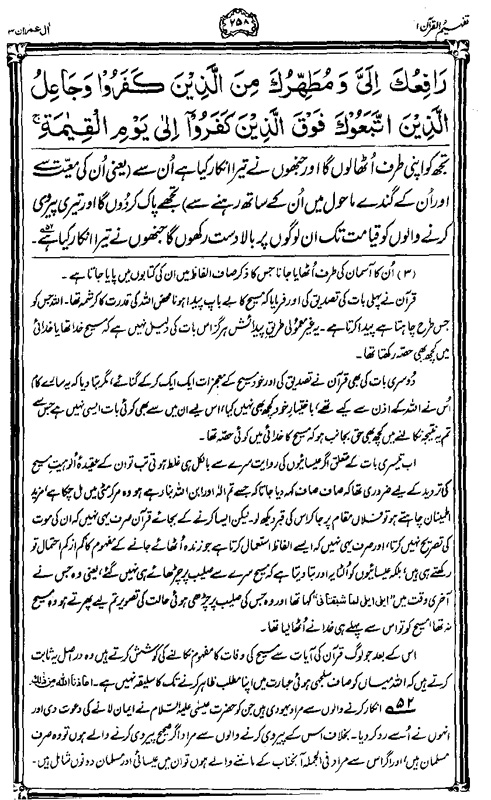 تفہیم القرآن ۱
۲۵۸
آل عمران ۳
رَافِعُكَ اِلَيَّ وَمُطَهِّرُكَ مِنَ الَّذِيْنَ كَفَرُوْا وَجَاعِلُ
الَّذِيْنَ اتَّبَعُوْكَ فَوْقَ الَّذِيْنَ كَفَرُوْۤا اِلٰى يَوْمِ الْقِيٰمَةِ ۚ
تجھ کو اپنی طرف اُٹھا لوں گا اور جنھوں نے تیرا انکار کیا ہے اُن سے (یعنی اُن کی معیّت سے
اور اُن کے گندے ماحول میں اُن کے ساتھ رہنے سے) تجھے پاک کر دُوں گا اور تیری پیروی
کرنے والوں کو قیامت تک ان لوگوں پر بالادست رکھوں گا جنھوں نے تیرا انکار کیا ہے۔۵۲
(۳) اُن کا آسمان کی طرف اُٹھایا جانا جس کا ذکر صاف الفاظ میں ان کی کتابوں میں پایا جاتا ہے۔
قرآن نے پہلی بات کی تصدیق کی اور فرمایا کہ مسیح کا بے باپ پیدا ہونا محض اللہ کی قدرت کا کرشمہ تھا۔ اللہ جس کو
جس طرح چاہتا ہے پیدا کرتا ہے۔ یہ غیر معمولی طریقِ پیدائش ہرگز اس بات کی دلیل نہیں ہے کہ مسیح خدا تھا یا خدائی
میں کچھ بھی حصّہ رکھتا تھا۔
دُوسری بات کی بھی قرآن نے تصدیق کی اور خود مسیح کے معجزات ایک ایک کر کے گنائے، مگر بتا دیا کہ یہ سارے کام
اُس نے اللہ کے اذن سے کیے تھے، باختیارِ خود کچھ بھی نہیں کیا، اس لیے ان میں سے بھی کوئی بات ایسی نہیں ہے جس سے
تم یہ نتیجہ نکالنے میں کچھ بھی حق بجانب ہو کہ مسیح کا خدائی میں کوئی حصّہ تھا۔
اب تیسری بات کے متعلق اگر عیسائیوں کی روایت سرے سے بالکل ہی غلط ہوتی تب تو ان کے عقیدۂ الوہیتِ مسیح
کی تردید کے لیے ضروری تھا کہ صاف صاف کہہ دیا جاتا کہ جسے تم الٰہ اور ابن اللہ بنا رہے ہو وہ مر کر مٹی میں مل چکا ہے، مزید
اطمینان چاہتے ہو تو فلاں مقام پر جا کر اس کی قبر دیکھ لو۔ لیکن ایسا کرنے کے بجائے قرآن صرف یہی نہیں کہ ان کی موت
کی تصریح نہیں کرتا، اور صرف یہی نہیں کہ ایسے الفاظ استعمال کرتا ہے جو زندہ اُٹھائے جانے کے مفہوم کا کم از کم احتمال تو
رکھتے ہی ہیں، بلکہ عیسائیوں کو اُلٹا یہ اور بتا دیتا ہے کہ مسیح سرے سے صلیب پر چڑھائے ہی نہیں گئے، یعنی وہ جس نے
آخری وقت میں ”ایلی ایلی لما شبقتانی“ کہا تھا اور وہ جس کی صلیب پر چڑھی ہوئی حالت کی تصویر تم لیے پھرتے ہو وہ مسیح
نہ تھا، مسیح کو تو اس سے پہلے ہی خدا نے اُٹھا لیا تھا۔
اس کے بعد جو لوگ قرآن کی آیات سے مسیح کی وفات کا مفہوم نکالنے کی کوشش کرتے ہیں وہ دراصل یہ ثابت
کرتے ہیں کہ اللہ میاں کو صاف سلجھی ہوئی عبارت میں اپنا مطلب ظاہر کرنے تک کا سلیقہ نہیں ہے۔ اعاذنا اللہ من ذٰلک
۵۲ انکار کرنے والوں سے مراد یہودی ہیں جن کو حضرت عیسیٰ علیہ السّلام نے ایمان لانے کی دعوت دی اور
انہوں نے اُسے رد کر دیا۔ بخلاف اس کے پیروی کرنے والوں سے مراد اگر صحیح پیروی کرنے والے ہوں تو وہ صرف
مسلمان ہیں، اور اگر اس سے مراد فی الجملہ آنجناب کے ماننے والے ہوں تو ان میں عیسائی اور مسلمان دونوں شامل ہیں۔